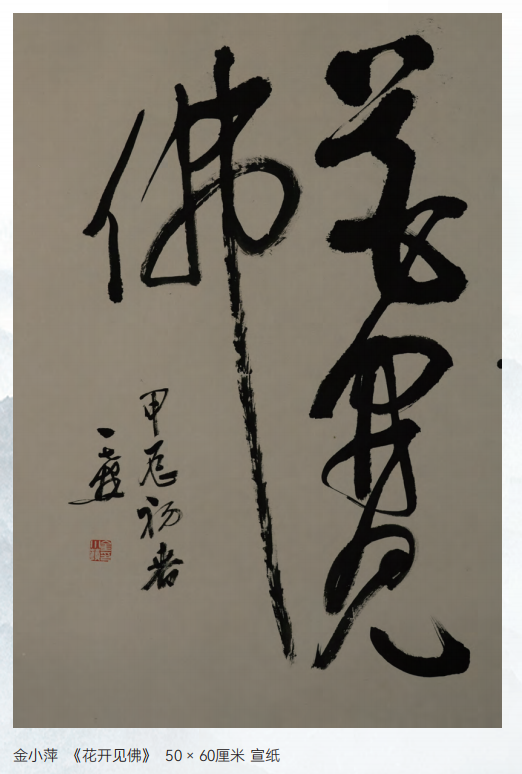 花開見
佛
甲辰初
金小萍 《花开见佛》 50 × 60厘米 宣纸